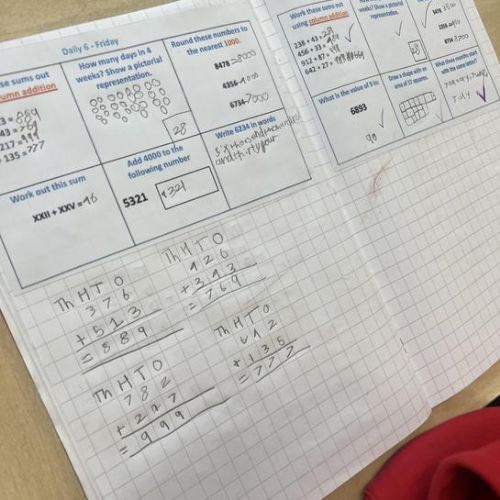 Daily 6 - Friday
se sums out
umn addition
3 = 889
43 = 769
217 = 999
135 = 777
How many days in 4
weeks? Show a pictorial
representation.
28
Round these numbers to
the nearest 1000.
8471 = 8000
4356 = 4000
6734 = 7000
Work out this sum
XXII + XXV = 46
Add 4000 to the
following number
5321
9321
Write 6234 in words
Work these sums out
using column addition
238 + 43 =
456 + 33 =
912 + 87 =
642 + 27 =
weeks? Show a pictorial
representation.
28
What is the value of 9 in:
6893
90
Draw a shape with an
area of 17 squares.
What three months start
with the same letter?
July
Th H T O
3 7 6
+ 5 1 3
= 8 8 9
Th H T O
4 2 6
+ 3 4 3
= 7 6 9
Th H T O
7 8 2
+ 2 1 7
= 9 9 9
Th H T O
6 4 2
+ 1 3 5
= 7 7 7